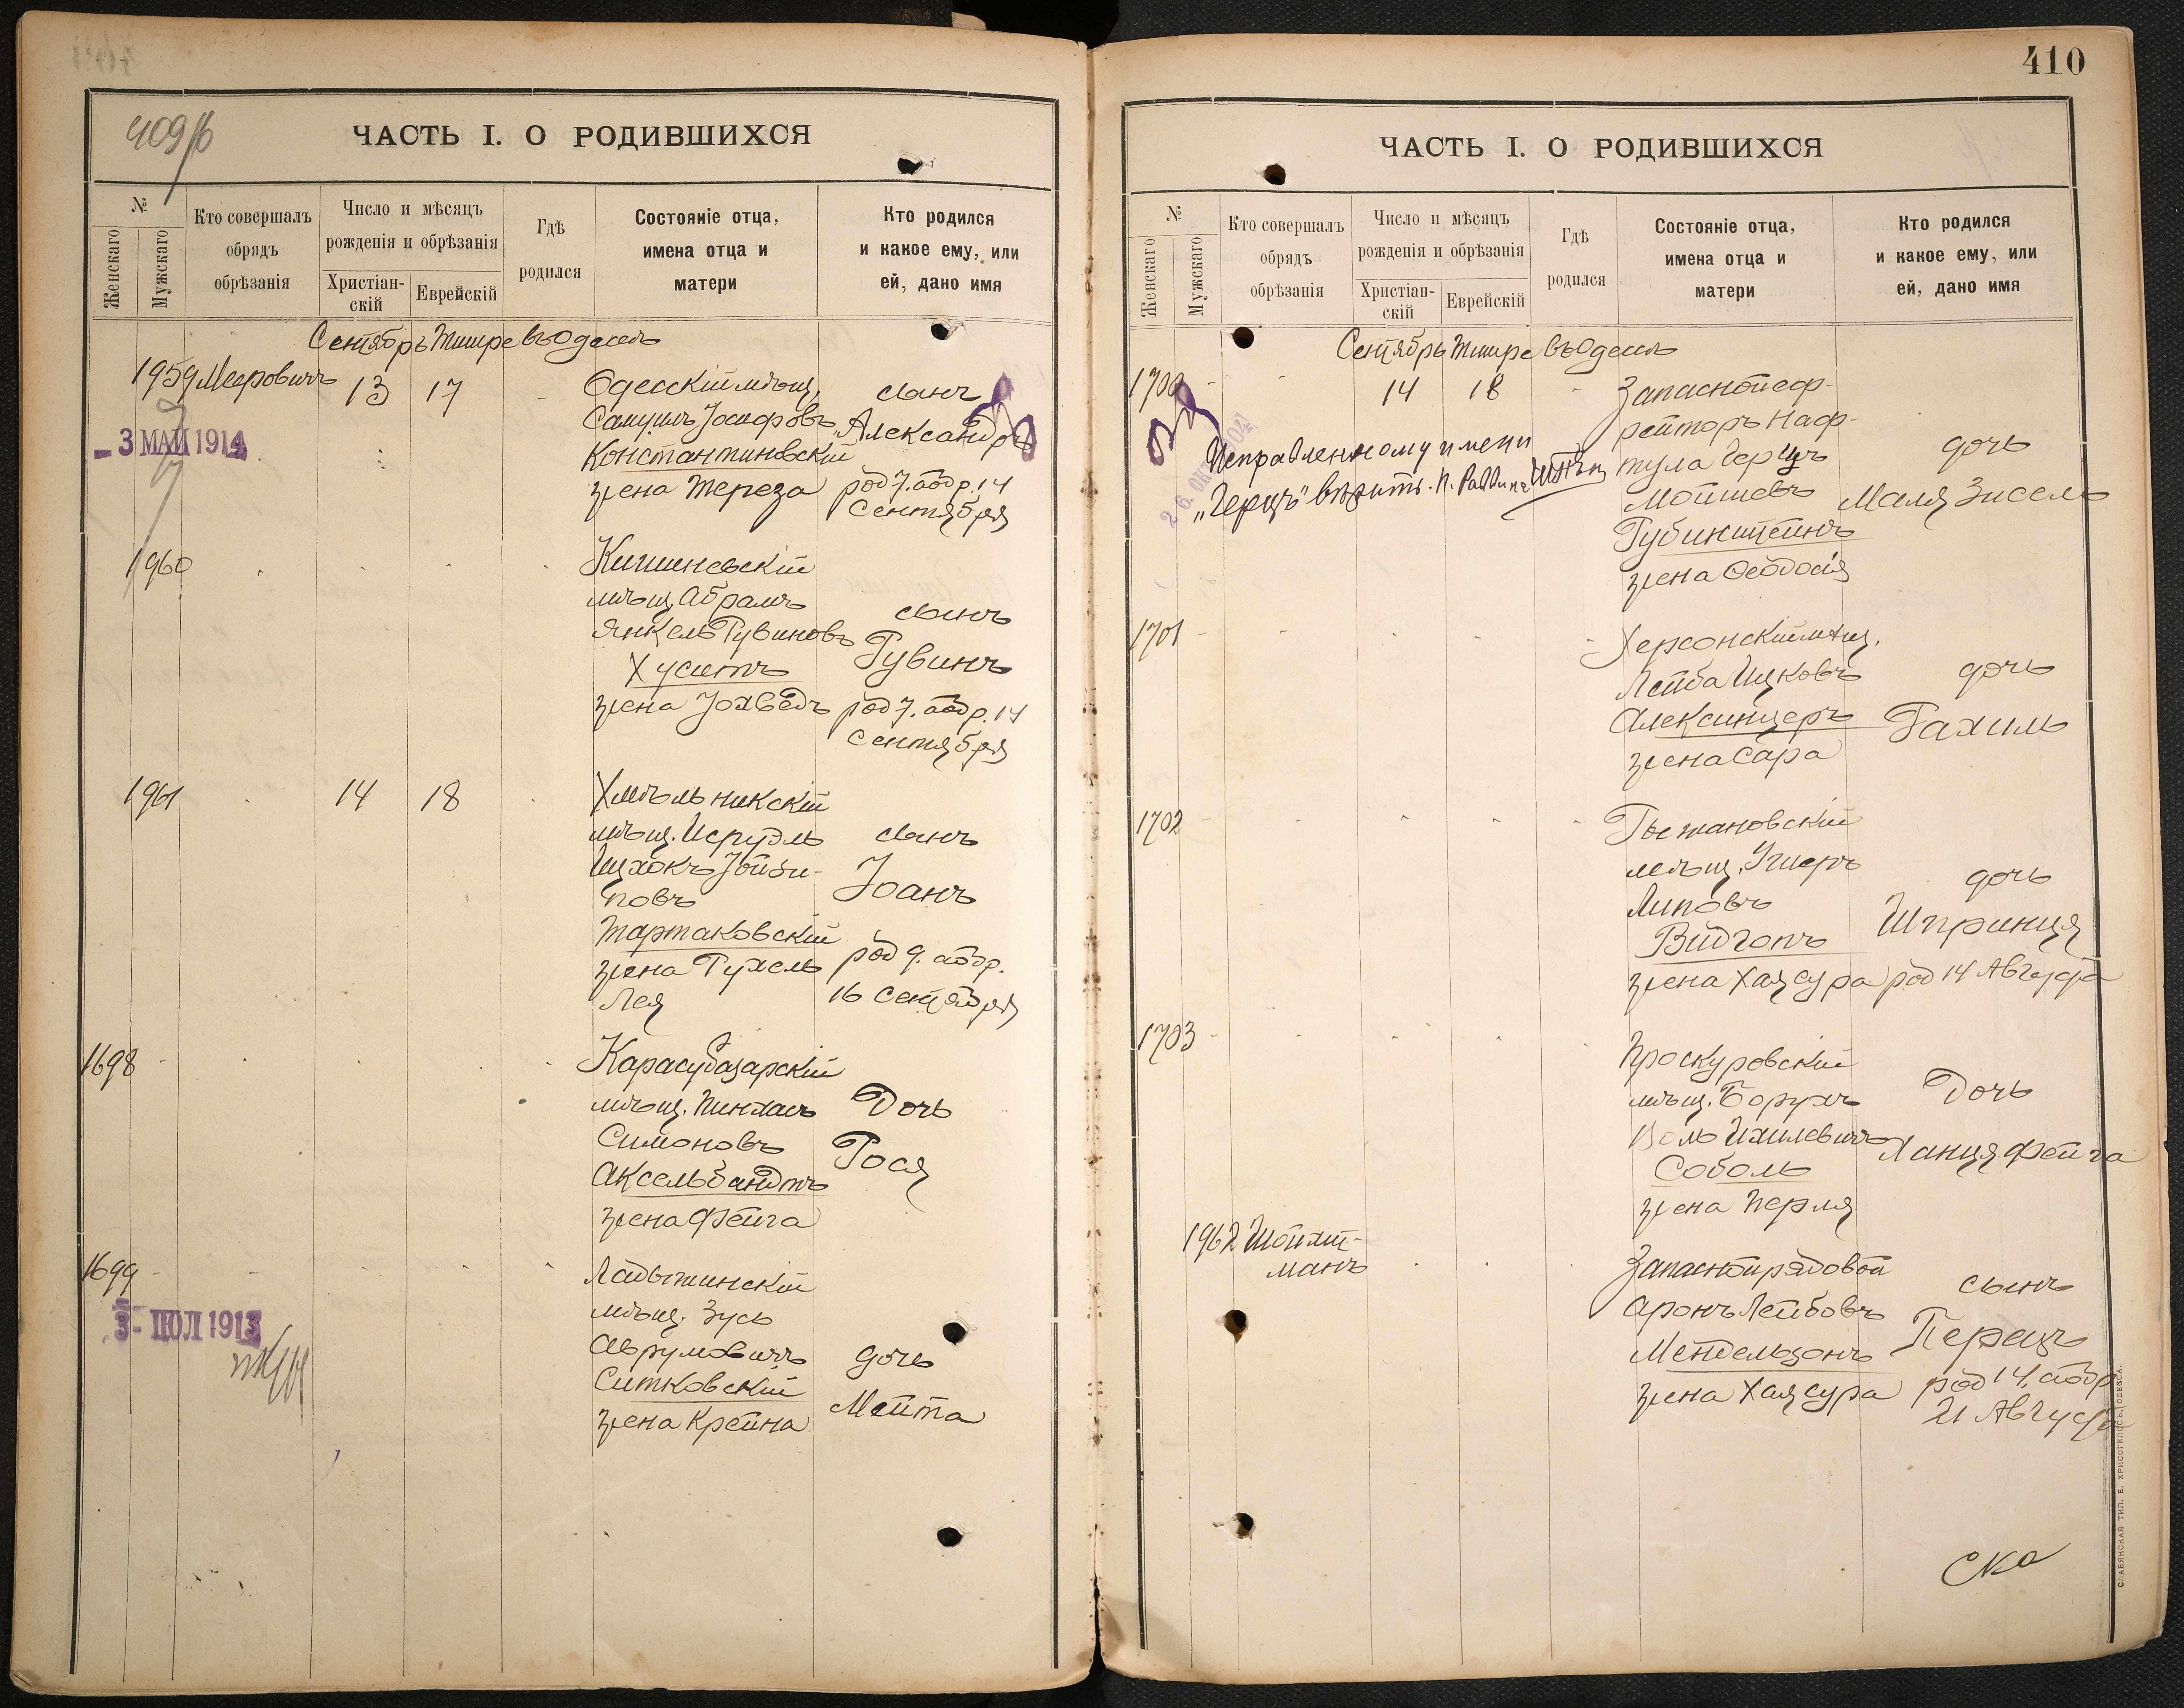 409/б
ЧАСТЬ I. О РОДИВШИХСЯ
№
Женскаго
Мужскаго
Кто совершалъ
обрядъ
обрѣзанія
Число и мѣсяцъ
рожденія и обрѣзанія
Христіан-
скій
Еврейскій
Гдѣ
родился
Состояніе отца,
имена отца и
матери
Кто родился
и какое ему, или
ей, дано имя
Сентябрь Тишре въ Одессѣ
1959 Мееровичъ 13 17
- 3 МАЙ 1914
Одесскій мѣщ.
Самуилъ Іосифовъ
Константиновскій
жена Тереза
сынъ
„Александръ“
род 7. а обр. 14
Сентября
1960
Кишиневскій
мѣщ. Абрамъ
Янкель Рувиновъ
Хуситъ
жена Іохведъ
сынъ
Рувинъ
род 7. а обр. 14
Сентября
1961 14 18
Хмѣльникскій
мѣщ. Исруэль
Ицхокъ Іойзи-
повъ
Тартаковскій
жена Рухель
Лея
сынъ
Іоанъ
род 9. а обр.
16 Сентября
1698
Карасубазарскій
мѣщ. Пинхасъ
Симоновъ
Аксельбандтъ
жена Фейга
Дочь
Рося
1699
3 - ІЮЛ 1913
Ладыжинскій
мѣщ. Зусь
Аврумовичъ
Ситковскій
жена Крейна
дочь
Мейта
410
ЧАСТЬ I. О РОДИВШИХСЯ
№
Женскаго
Мужскаго
Кто совершалъ
обрядъ
обрѣзанія
Число и мѣсяцъ
рожденія и обрѣзанія
Христіан-
скій
Еврейскій
Гдѣ
родился
Состояніе отца,
имена отца и
матери
Кто родился
и какое ему, или
ей, дано имя
Сентябрь Тишре въ Одессѣ
1700 14 18
Исправленному имени
„Герцъ“ вѣрить. П. Раввина
Запасной еф-
рейторъ Наф-
тула Герцъ
Мойшевъ
Рубинштейнъ
жена Ѳеодосія
дочь
Маля Зисель
1701
Херсонскій мѣщ.
Лейба Ицковъ
Алексинцеръ
жена Сара
дочь
Рахиль
1702
мѣщ. Ушеръ
Липовъ
Видгопъ
жена Хая Сура
дочь
Шпринця
род 14 Августа
1703
Проскуровскій
мѣщ. Борухъ
Воль Ихилевичъ
Соболь
жена Перля
Дочь
Ханця Фейга
1962 Шойхт-
манъ
Запасной рядовой
Аронъ Лейбовъ
Мендельзонъ
жена Хая Сура
сынъ
Перецъ
род 14. а обр
21 Августа
СЛАВЯНСКАЯ ТИП. Е. ХРИСОГЕЛОСЪ, ОДЕССА.